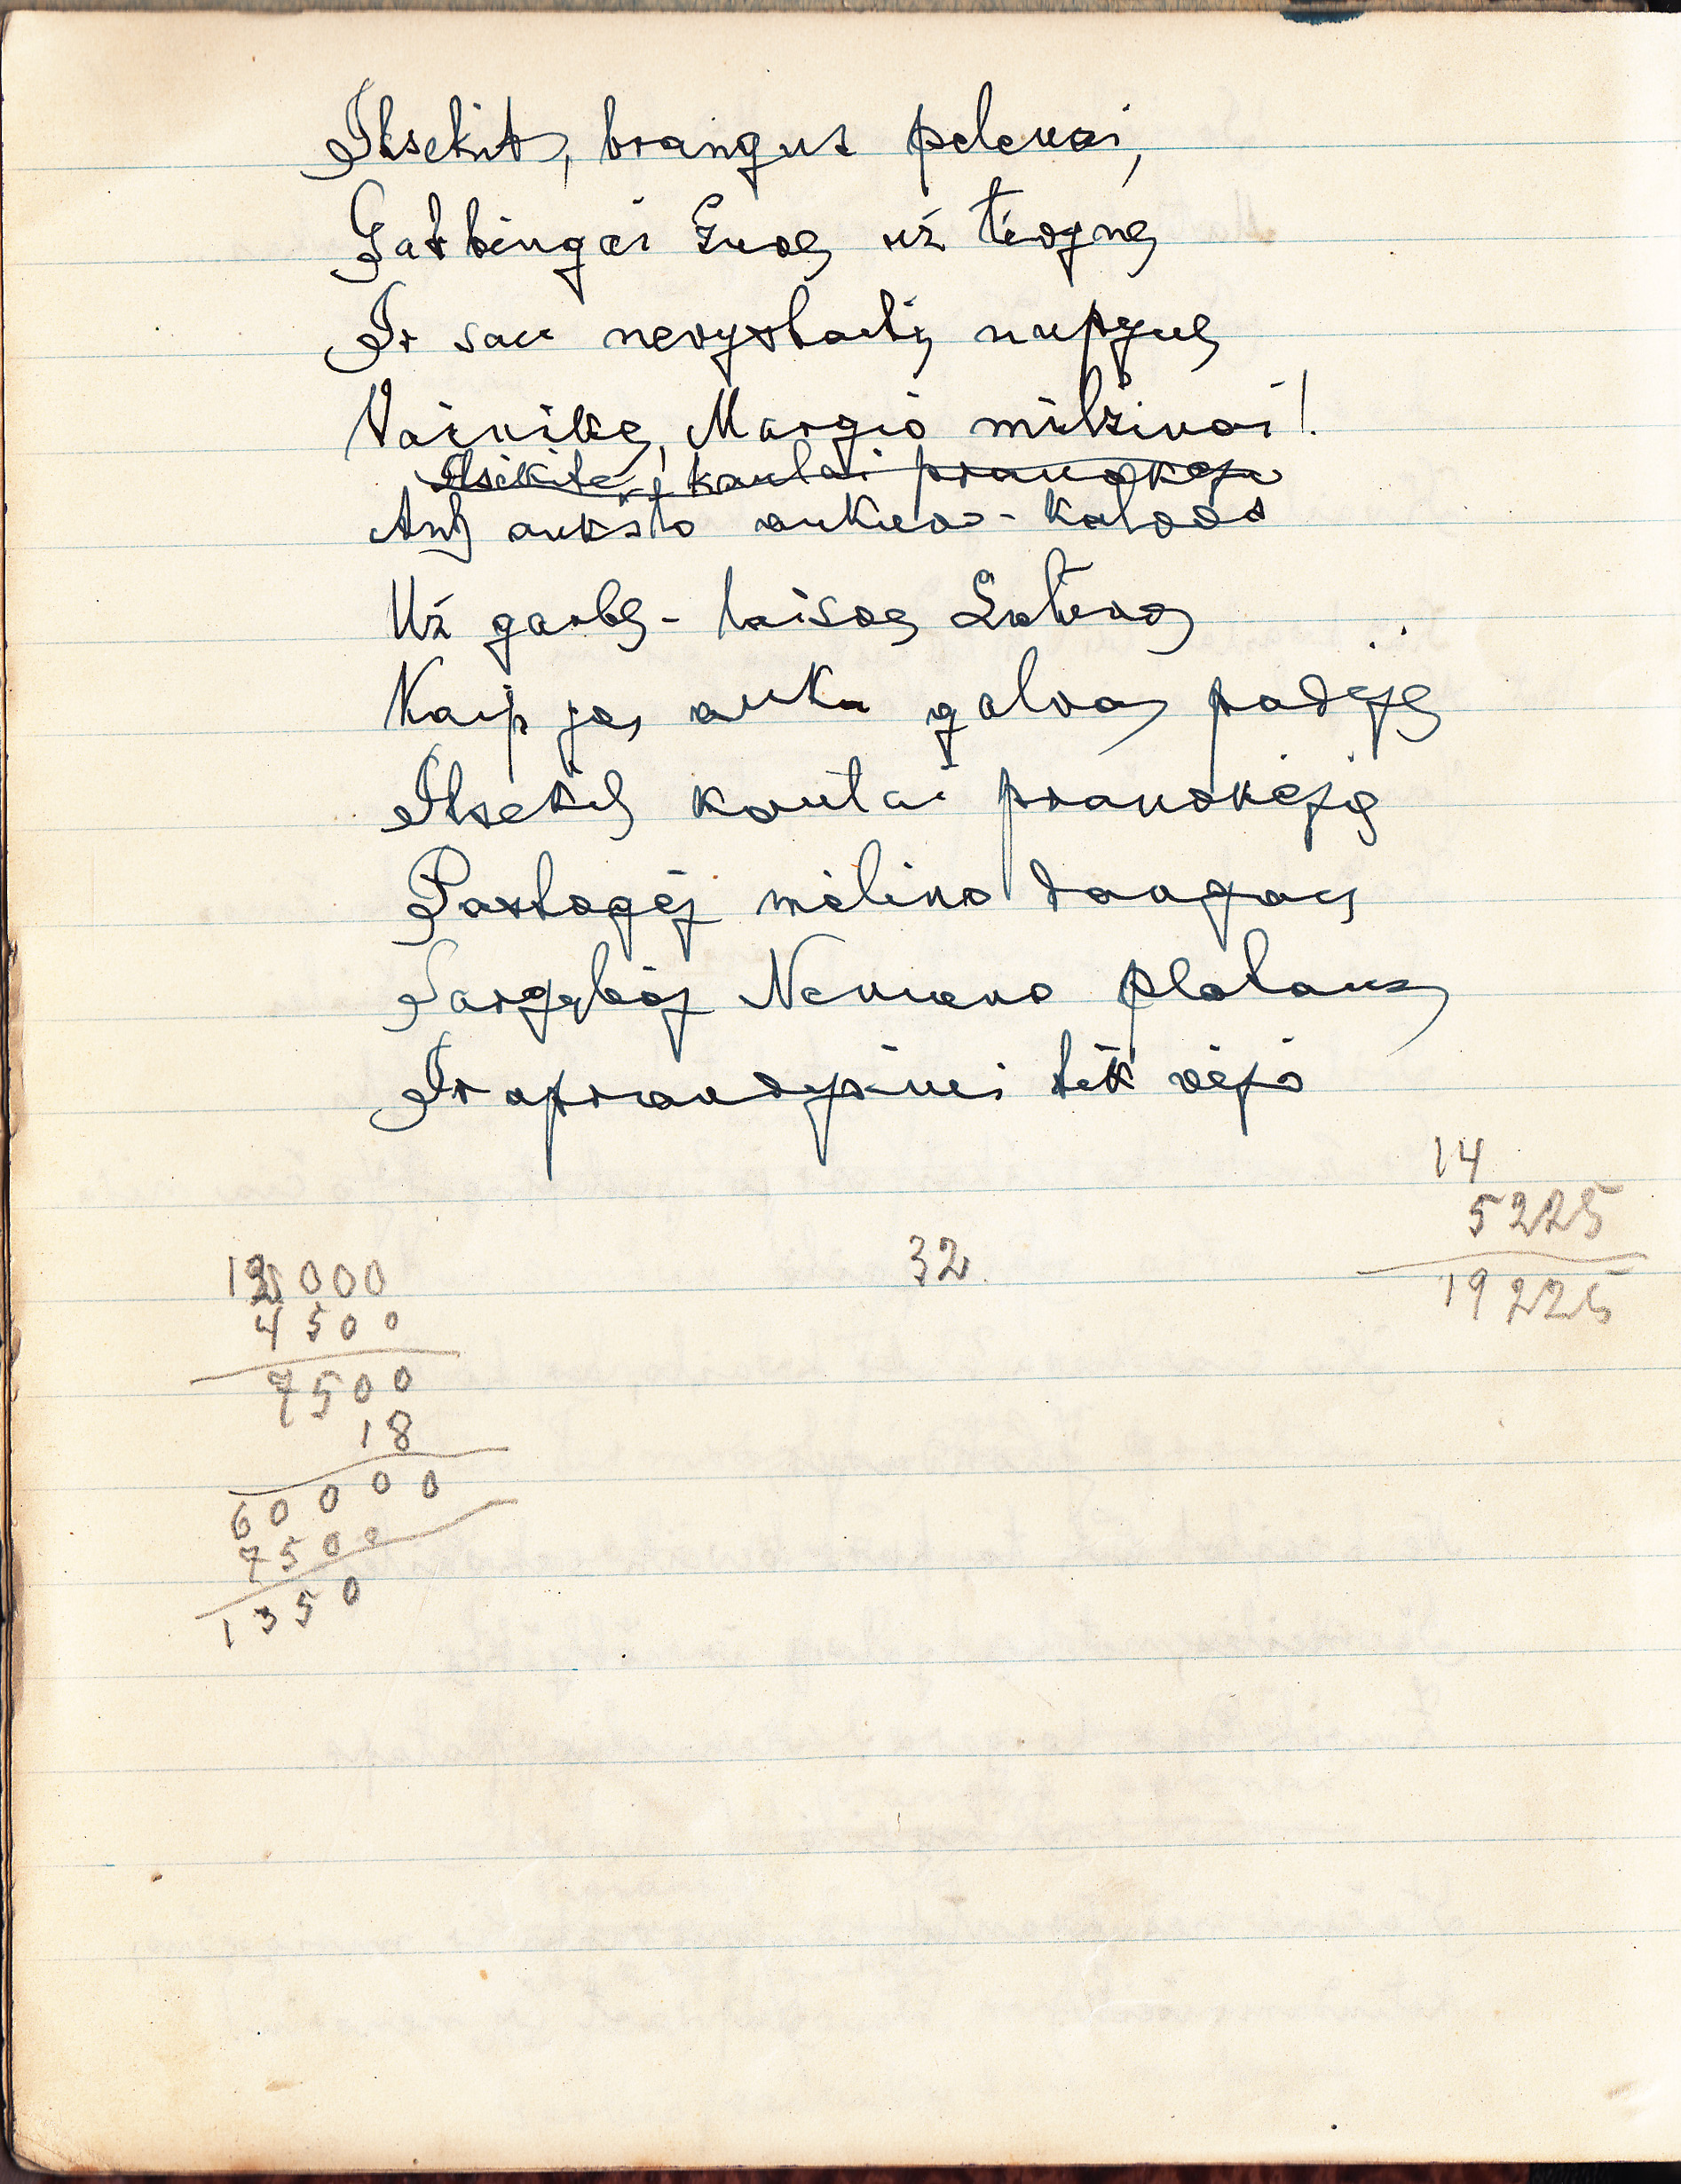 Ilsėkit, brangus pelenai,
Garbingai žuvę už tėvynę
Ir sau nevystantį nupynę
Vainiką, Margio milžinai!
Ilsėkitės, kaulai pranokėjų
Ant aukšto aukuro - kalvos
Už garbę - laisvę Lietuvos
Kaip ją, auką galvas padėję
Ilsėkit kaulai pranokėję
Pastogėj mėlino dangaus
Sargyboj Nemuno plataus
Ir apraudojimui tik vėjo
14
5225
19225
32
12000
4500
7500
18
60000
7500
1350